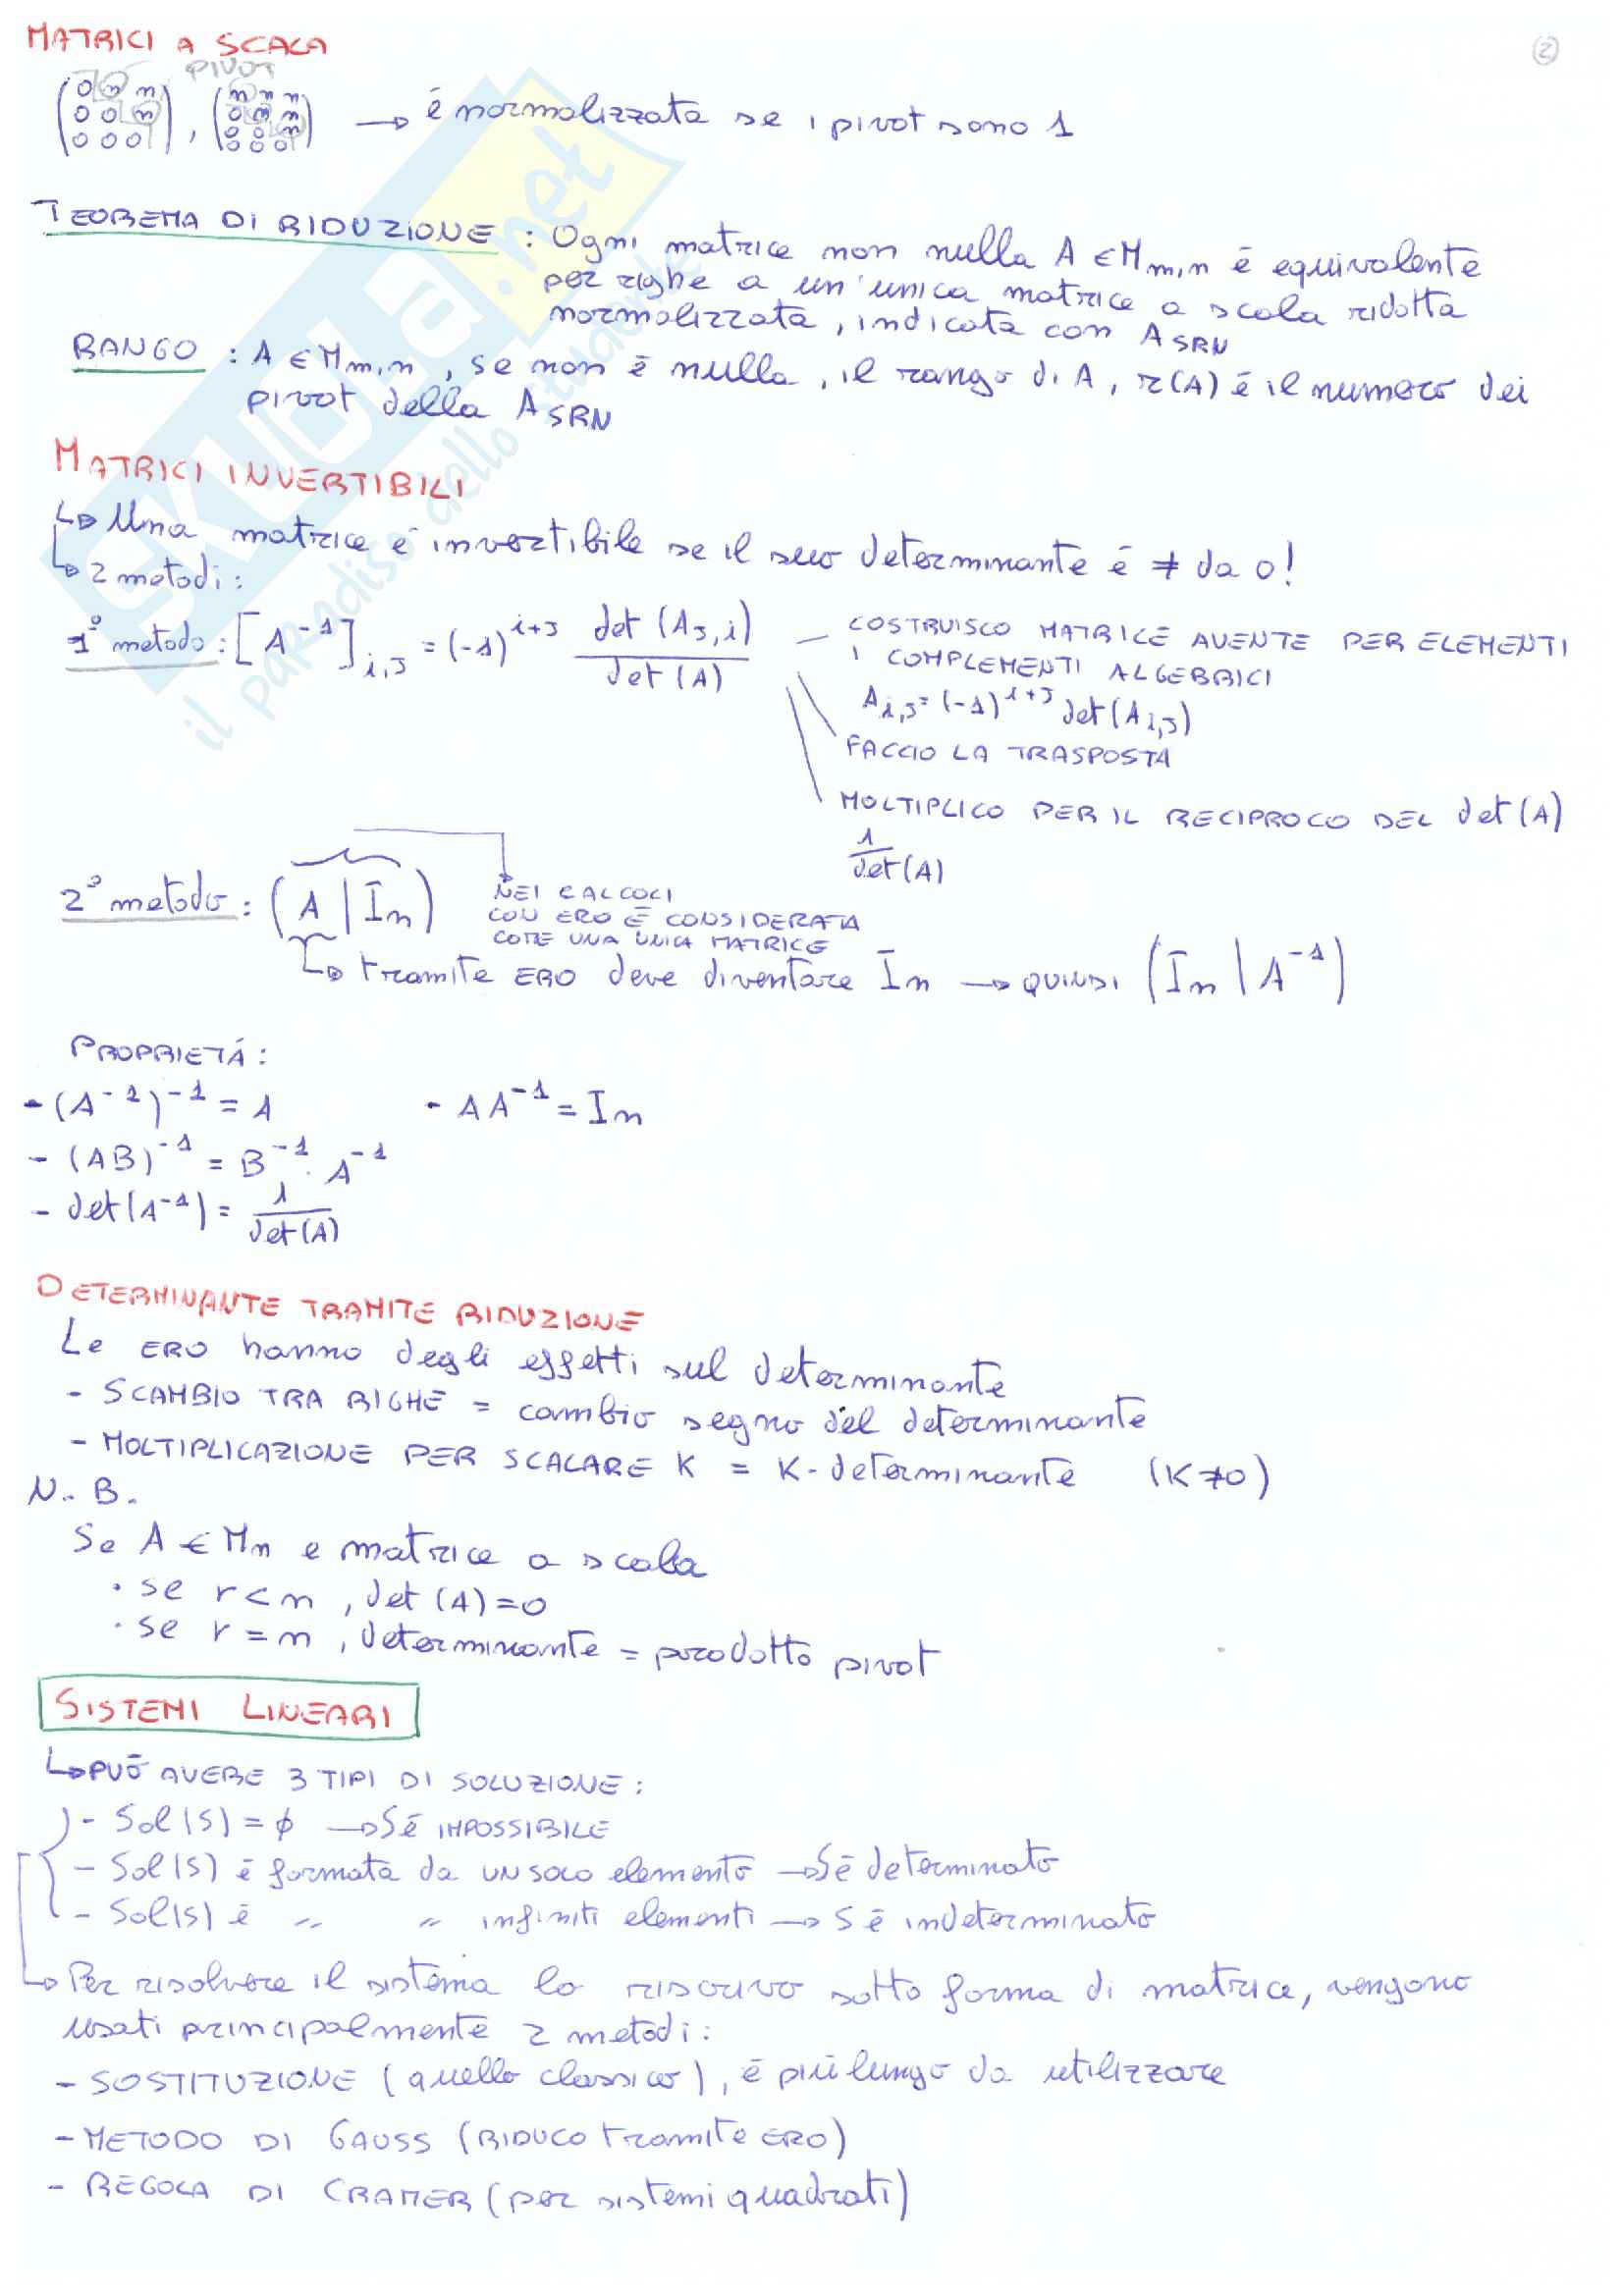 MATRICI A SCALA
②
PIVOT
(0 n n
0 0 n
0 0 0), (n n n
0 n n
0 0 n
0 0 0) → é normalizzata se i pivot sono 1
TEOREMA DI RIDUZIONE : Ogni matrice non nulla A ∈ Mm,n é equivalente
per righe a un'unica matrice a scala ridotta
normalizzata, indicata con ASRN
RANGO : A ∈ Mm,n, se non é nulla, il rango di A, r(A) é il numero dei
pivot della ASRN
MATRICI INVERTIBILI
↳ Una matrice é invertibile se il suo determinante é ≠ da 0!
↳ 2 metodi:
1° metodo: [A⁻¹]i,J = (-1)^i+J det(AJ,i) / det(A)
COSTRUISCO MATRICE AVENTE PER ELEMENTI
I COMPLEMENTI ALGEBRICI
Ai,J = (-1)^i+J det(Ai,J)
FACCIO LA TRASPOSTA
MOLTIPLICO PER IL RECIPROCO DEL det(A)
1/det(A)
2° metodo: (A | In)
NEI CALCOLI
CON ERO É CONSIDERATA
COME UNA UNICA MATRICE
↳ tramite ERO deve diventare In → QUINDI (In | A⁻¹)
PROPRIETÁ:
- (A⁻¹)⁻¹ = A - AA⁻¹ = In
- (AB)⁻¹ = B⁻¹ · A⁻¹
- det(A⁻¹) = 1/det(A)
DETERMINANTE TRAMITE RIDUZIONE
Le ERO hanno degli effetti sul determinante
- SCAMBIO TRA RIGHE = cambio segno del determinante
- MOLTIPLICAZIONE PER SCALARE K = K·determinante (K≠0)
N.B.
Se A ∈ Mn e matrice a scala
· se r<n, det(A)=0
· se r=n, determinante = prodotto pivot
SISTEMI LINEARI
↳ PUÓ AVERE 3 TIPI DI SOLUZIONE:
- Sol(S) = ϕ → S é IMPOSSIBILE
- Sol(S) é formata da UN SOLO elemento → S é determinato
- Sol(S) é " " infiniti elementi → S é indeterminato
↳ Per risolvere il sistema lo riscrivo sotto forma di matrice, vengono
usati principalmente 2 metodi:
- SOSTITUZIONE (quello classico), é piú lungo da utilizzare
- METODO DI GAUSS (RIDUCO tramite ERO)
- REGOLA DI CRAMER (per sistemi quadrati)
SKUOLA.net
il paradiso dello studente